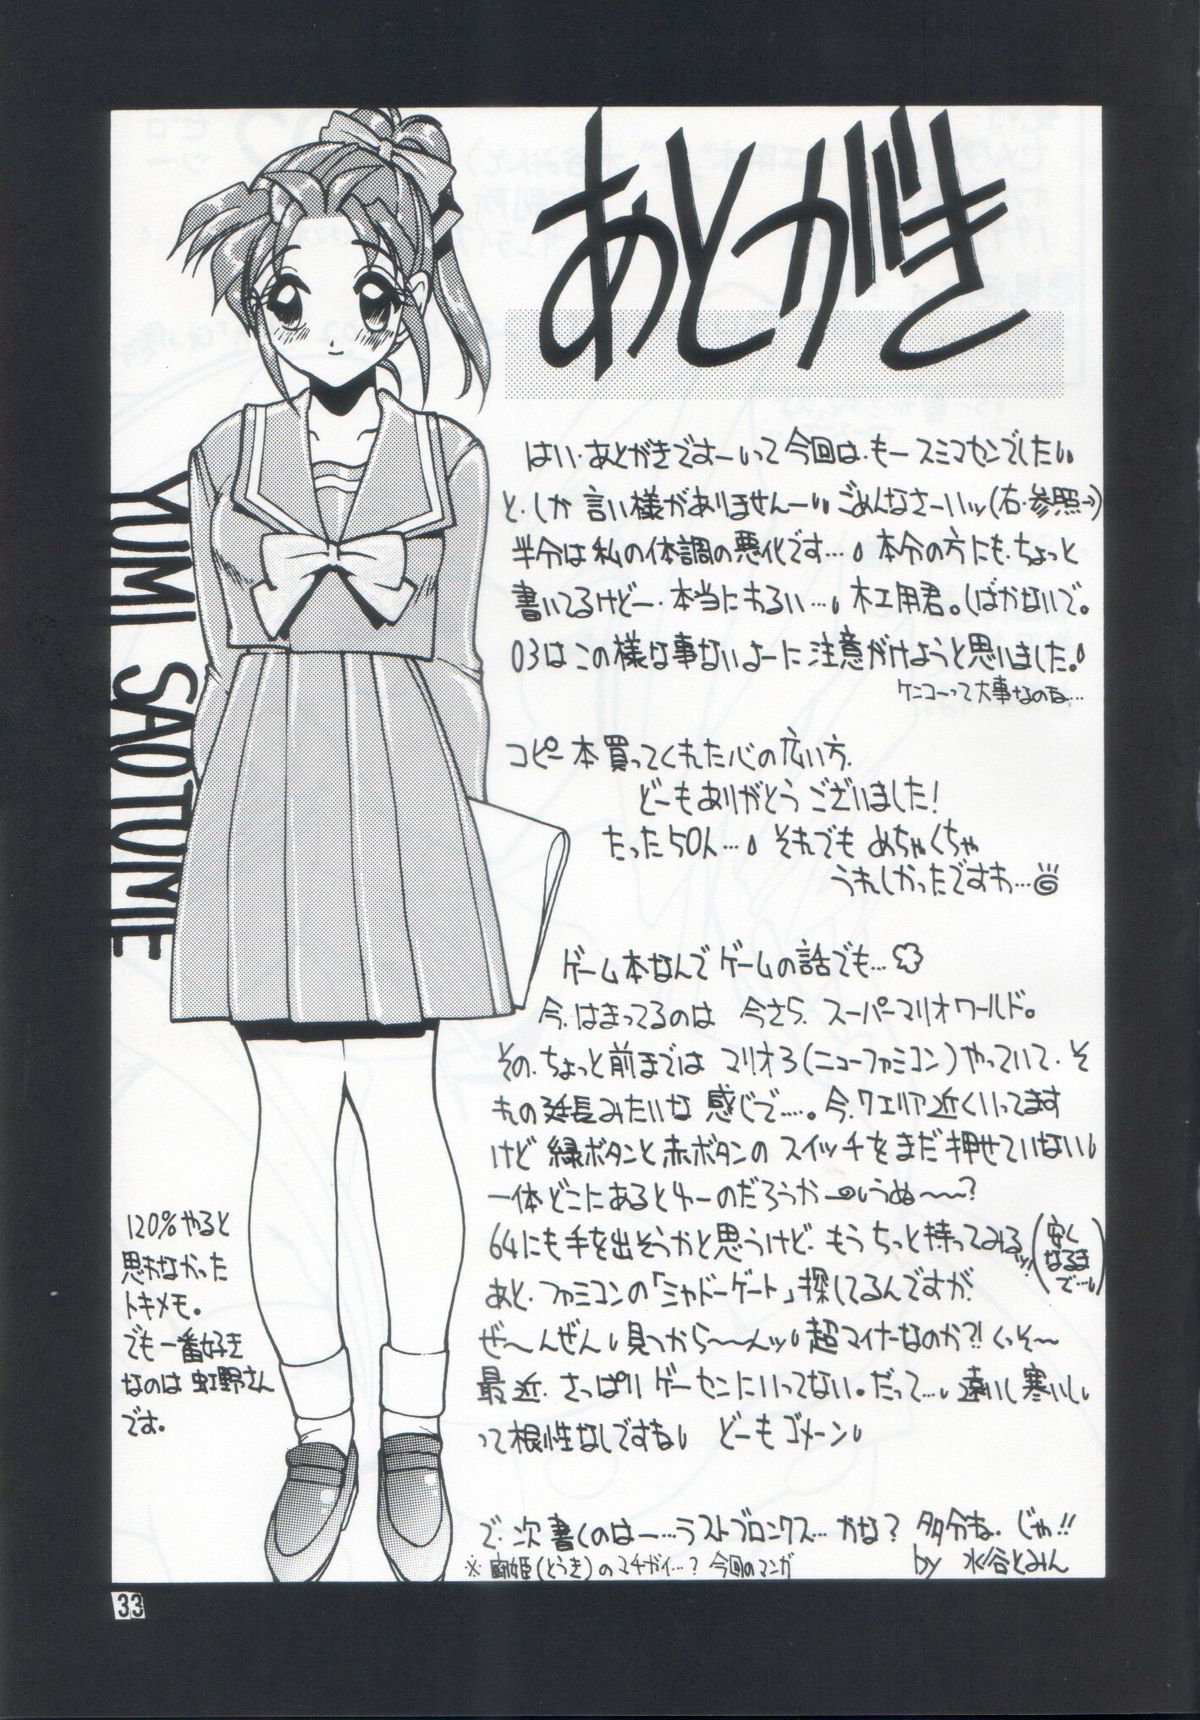 あとがき
はい・あとがきですーいって今回は・もースミマセンでした
と・しか言い様がありませんー ごめんなさーいッ(右・参照→)
半分は私の体調の悪化です…。本分の方にも、ちょっと
書いてるけどー・本当にわるい…。木工用君。(ばかないで。
03はこの様な事ないよーに注意がけようと思いました。
ケンコーって大事なのね…
コピー本買ってくれた心の広い方、
どーもありがとうございました!
たった50人…。それでもめちゃくちゃ
うれしかったですわ…
ゲーム本なんでゲームの話でも…
今、はまってるのは 今さら、スーパーマリオワールド。
その、ちょっと前まではマリオ3(ニューファミコン)やっていて・そ
れの延長みたいな感じで……。今、7エリア近くいってます
けど 緑ボタンと赤ボタンのスイッチをまだ押せていない
一体どこにあるとゆーのだろうか うぬ〜〜?
64にも手を出そうかと思うけど、もうちっと待ってみるッ!(安くなるまで…)
あと、ファミコンの「シャドーゲート」探してるんですが、
ぜ〜んぜん 見つから〜〜んッ 超マイナーなのか?!くっそ〜
最近、さっぱりゲーセンにいってない。だって… 遠いし寒いし
って根性なしですね どーもゴメーン
で、次書くのはー…ラストブロンクス…かな? 多分ね、じゃ!!
by 水谷とみん
姫(とうき)のマチガイ…? 今回のマンガ
YUMI SAOTOME
120%やると
思わなかった
トキメモ。
でも一番好き
なのは虹野さん
です。
33